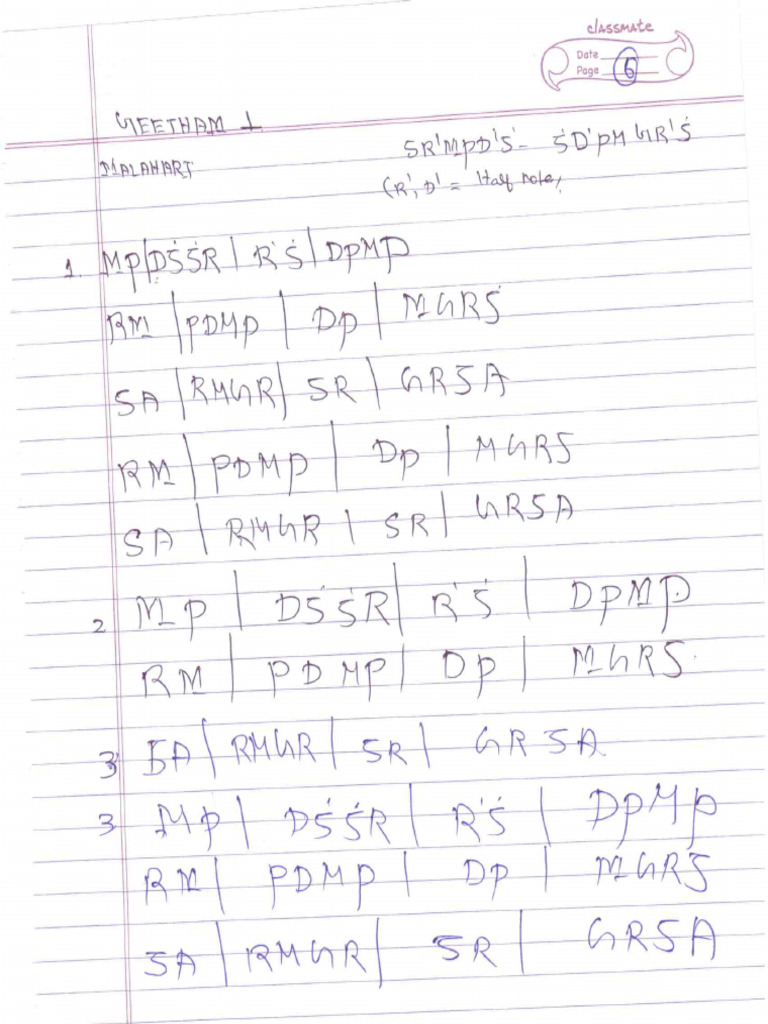 classmate
Date
Page 6
GEETHAM 1
MALAHARI
SR'MPD'Ṡ - ṠD'PMGR'Ṡ
(R', D' = Half note,
1. MP|DṠṠR | ṘṠ | DPMP
RM | PDMP | DP | MGRS
SA | RMGR | SR | GRSA
RM | PDMP | DP | MGRS
SA | RMGR | SR | GRSA
2 MP | DṠṠR | ṘṠ | DPMP
RM | PDMP | DP | MGRS.
3 SA | RMGR | SR | GRSA
3 MP | DṠṠR | ṘṠ | DPMP
RM | PDMP | DP | MGRS
SA | RMGR | SR | GRSA